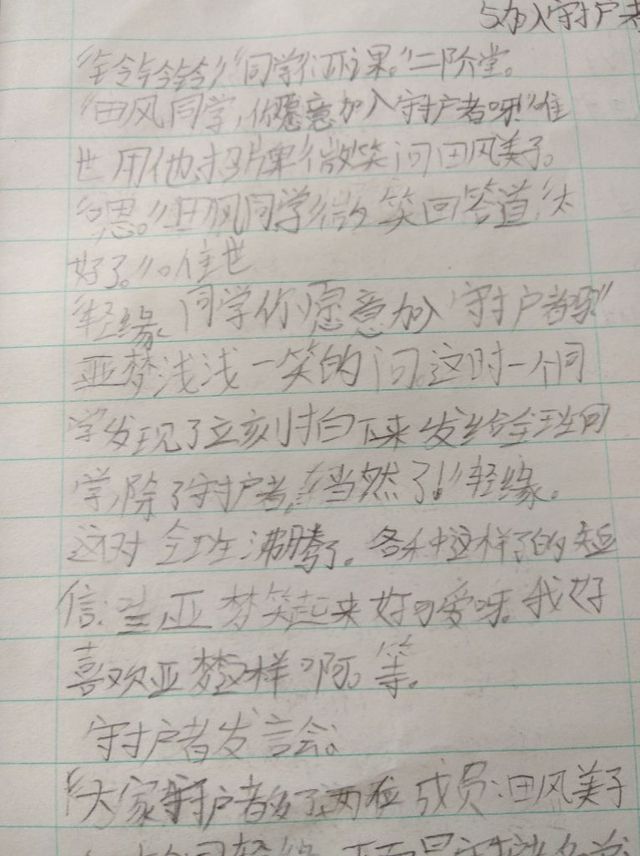 加入守护者
“铃铃铃”“同学们下课。”二阶堂。
“田风同学,你愿意加入守护者呀!”唯
世用他招牌微笑问田风美子。
“恩。”田风同学微笑回答道“太
好了。”唯世
“轻缘同学你愿意加入守护者吗”
亚梦浅浅一笑的问。这时一个同
学发现了立刻拍下来发给全班同
学,除了守护者,“当然了!”轻缘。
这时全班沸腾了。各种这样的短
信:亚梦笑起来好可爱呀。我好
喜欢亚梦这样啊。等。
守护者发言会。
“大家守护者多了两位成员:田风美子